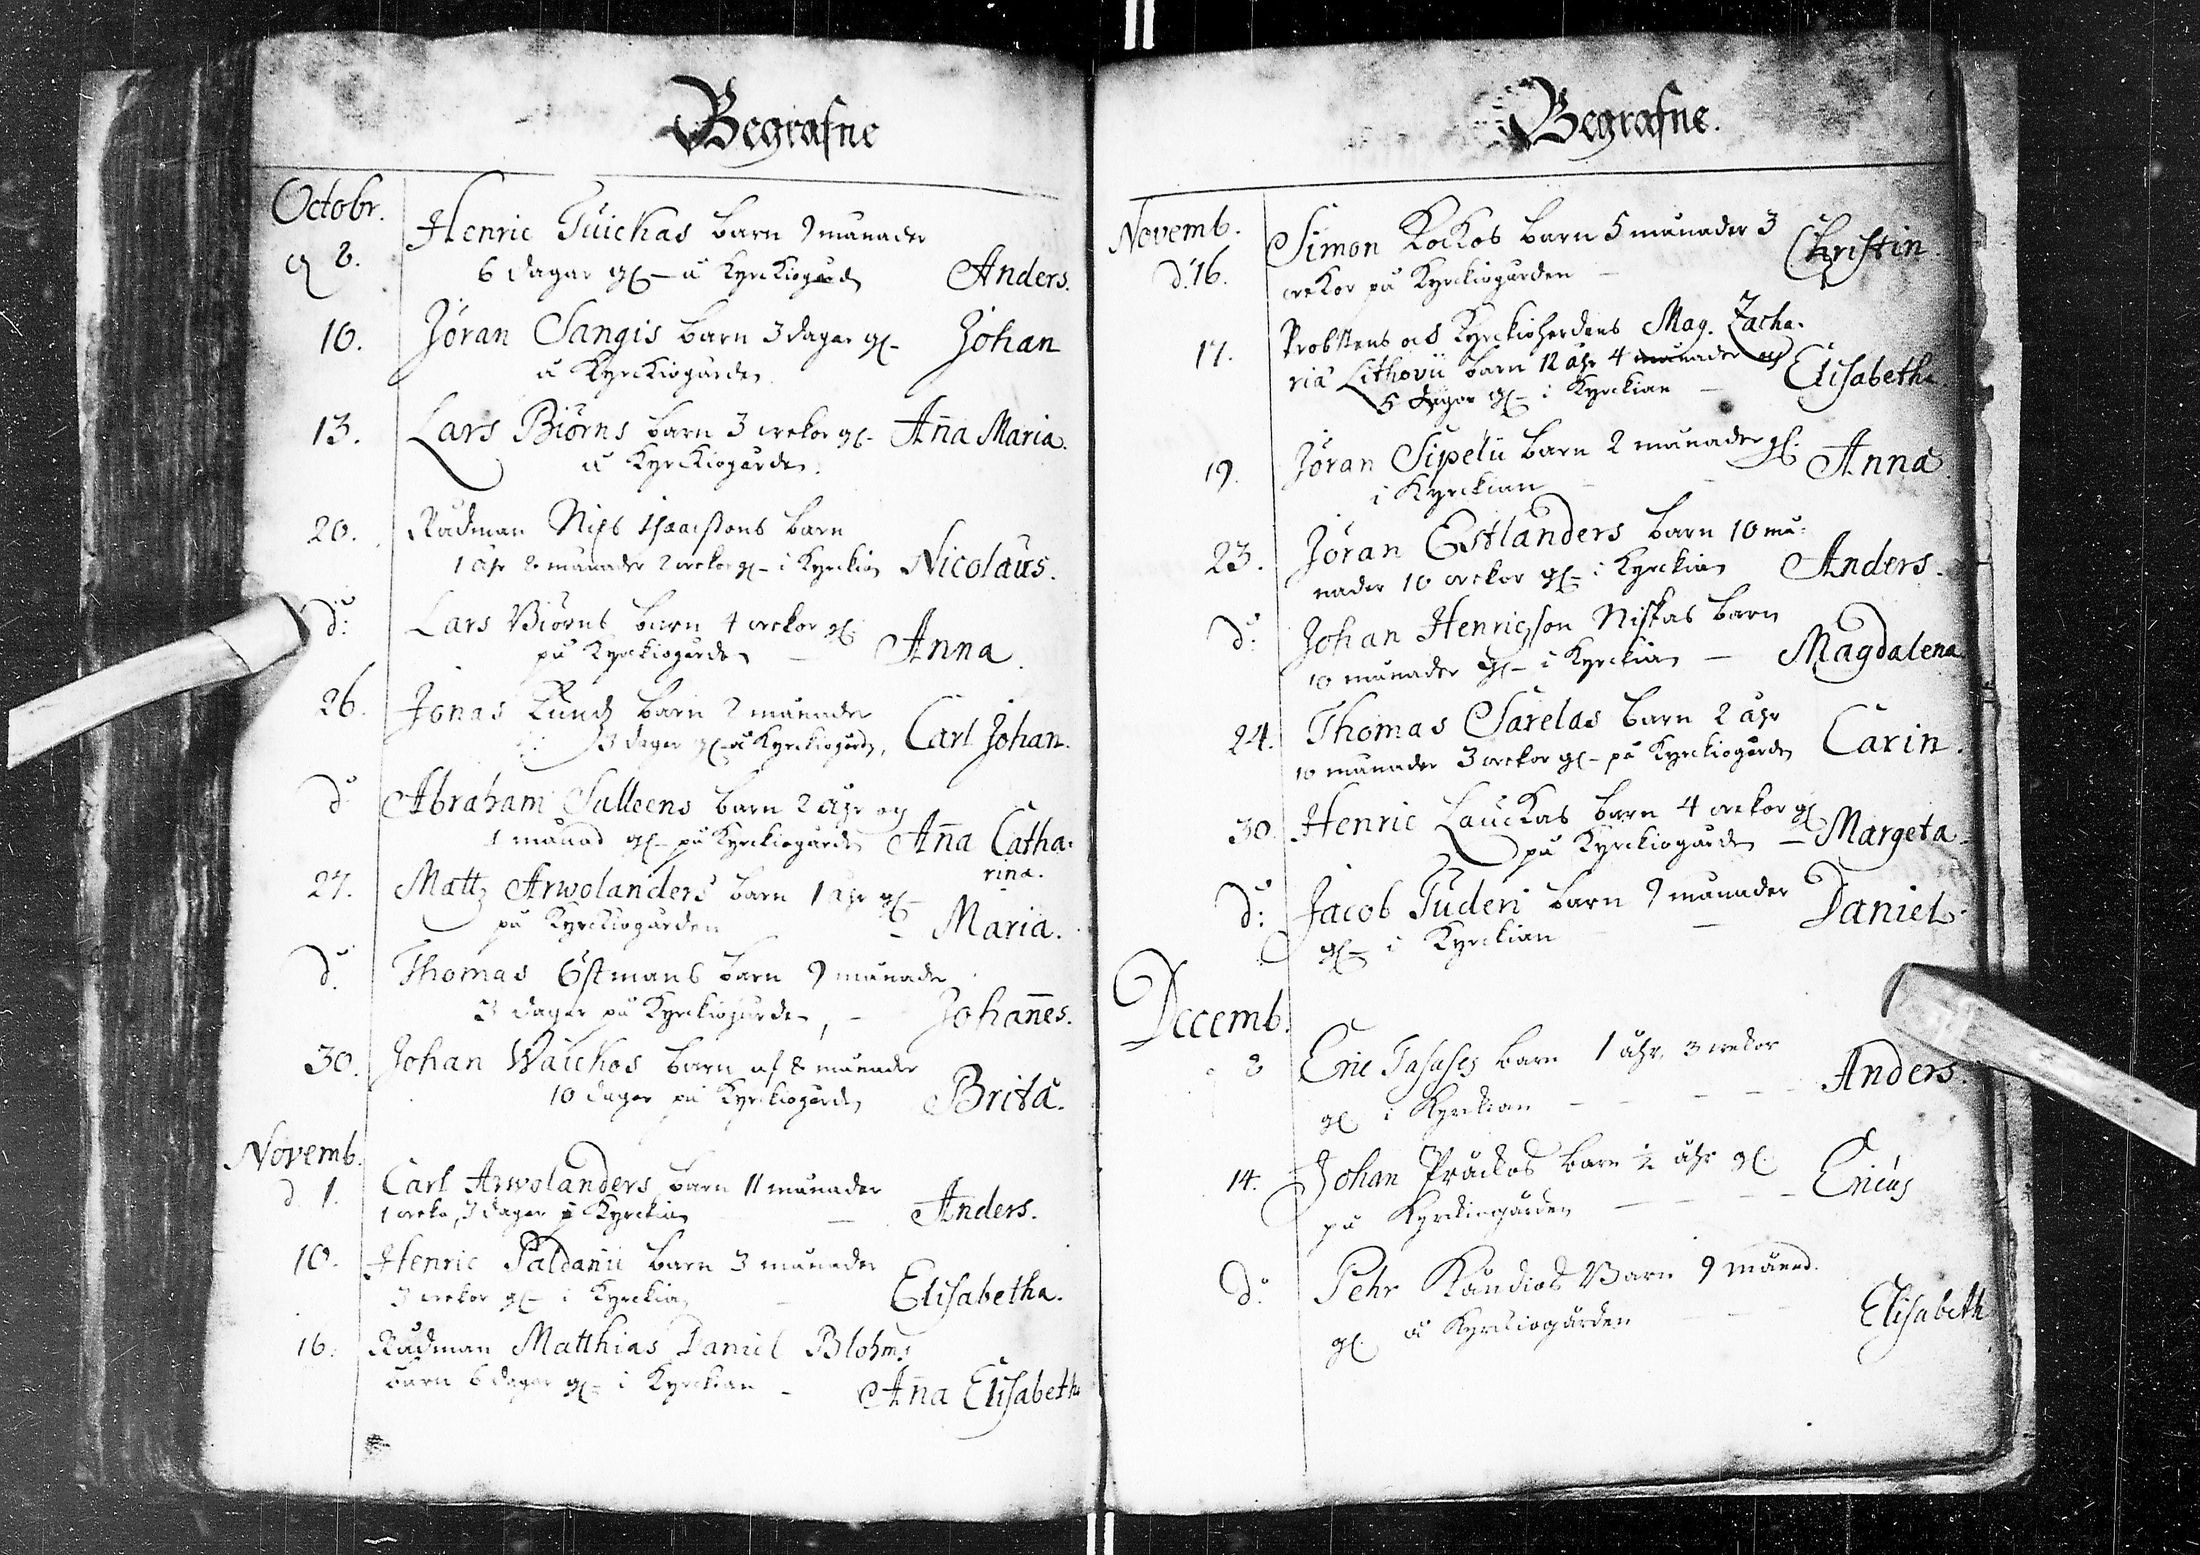 Begrafne
Octobr.
d 8. Henric Tuickas barn 9 månader
6 dagar gl— å Kyrckiogård Anders.
10. Jöran Sangis barn 3 dagar gl— Johan
å Kyrckiogården
13. Lars Biörns barn 3 wekor gl- Añа Maria.
å Kyrckiogården.
20. Rådman Nils Isaacssons barn
1 åhr 8 månader 2 wekor gl- i Kyrckian Nicolaus.
d:o Lars Biörns barn 4 wekor gl.
på Kyrckiogården — Anna.
26. Jonas Lundz barn 2 månader
3 dagar gl- å Kyrckiogård, Carl Johan.
d:o Abraham Salleens barn 2 åhr och
1 månad gl- på Kyrckiogården Aña Catha-
rina.
27. Mattz Arwolanders barn 1 åhr gl-
på Kyrckiogården — Maria.
d:o Thomas Östmans barn 9 månader
3 dagar på Kyrckiogården, — Johañes.
30. Johan Waickos barn af 8 månader
10 dagar på Kyrckiogården Brita.
Novemb.
d. 1. Carl Arwolanders barn 11 månader
1 weka, 3 dagar Kyrckian — Anders.
10. Henric Paldanii barn 3 månader
3 wekor gl- i Kyrckian — Elisabetha.
16. Rådman Matthias Daniel Blohms
barn 6 dagar gl- i Kyrckian - Aña Elisabetha
Begrafne.
Novemb.
d. 16. Simon Kockos barn 5 månader 3
wekor på Kyrckiogården — Christin.
17. Probstens och Kyrckioherdens Mag. Zacha-
riä Lithovii barn 12 åhr 4 månader och
5 dagar gl- i Kyrckian — Elisabetha
19. Jöran Sipelii barn 2 månader gl.
i Kyrckian — Anna
23. Jöran Estlanders barn 10 må-
nader 10 wekor gl- i Kyrckian Anders.
d:o Johan Henricsson Niskas barn
10 månader gl- i Kyrckian — Magdalena
24. Thomas Sarelas barn 2 åhr
10 månader 3 wekor gl- på Kyrckiogården Carin.
30. Henric Lauckas barn 4 wekor gl
på Kyrckiogården — Margeta.
d:o Jacob Tuderi barn 9 månader
gl- i Kyrckian — Daniel.
Decemb.
Eric barn 1 åhr, 3 wekor
gl i Kyrckian — — — Anders.
14. Johan Präckos barn ½ åhr gl.
på Kyrckiogården — — — Ericus
d:o Pehr Kandios Barn 9 månad.
gl. å Kyrckiogården — — Elisabeth